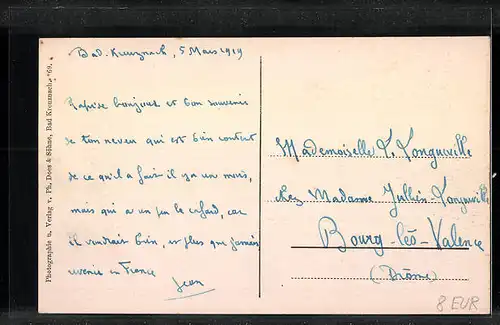 Bad-Kreuznach, 5 Mars 1919
bonjour et bon souvenir
de ton neveu qui est bien content
de ce qu'il a fait il y a un mois,
mais qui a un peu le cafard, car
il voudrait bien, plus que jamais
revenir en France
Jean
Mademoiselle L. Longueville
chez Madame Jullien-Longueville
Bourg-lès-Valence
(Drôme)
Photographie u. Verlag v. Ph. Dees & Söhne, Bad Kreuznach
8 EUR